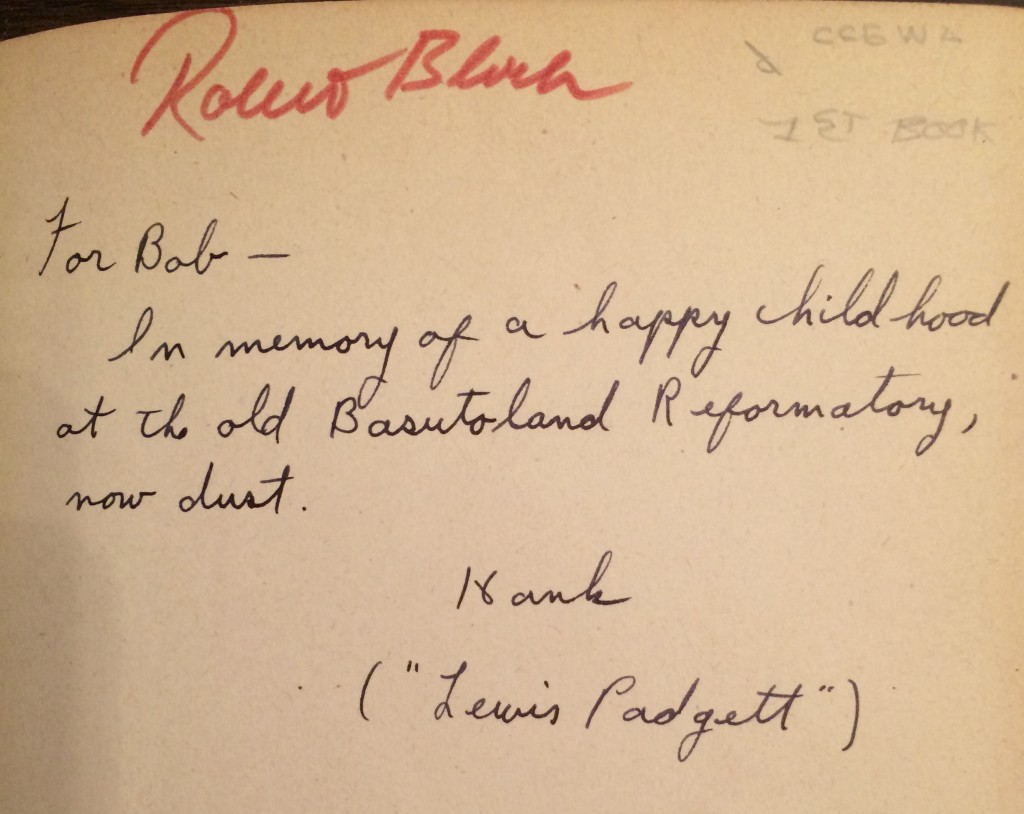 Robert Bloch
1ST BOOK
For Bob —
In memory of a happy childhood
at the old Basutoland Reformatory,
now dust.
Hank
("Lewis Padgett")